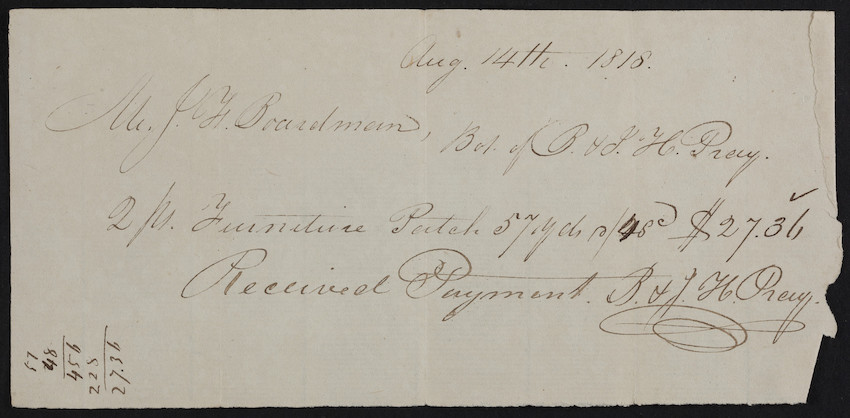 Aug. 14th. 1818.
Mr. J. H. Boardman,
Bot. of B. & J. H. Pray.
2 ps. Furniture Patch 57 yds a/48c $27.36
Received Payment. B. & J. H. Pray.
57
48
456
228
27.36